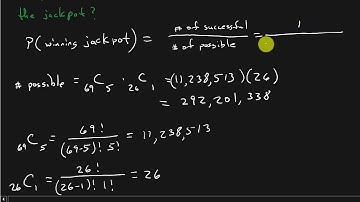 the jackpot?
P(winning jackpot) = # of successful / # of possible = 1
# possible = ₆₉C₅ · ₂₆C₁ = (11,238,513)(26)
= 292,201,338
₆₉C₅ = 69! / (69-5)! 5! = 11,238,513
₂₆C₁ = 26! / (26-1)! 1! = 26